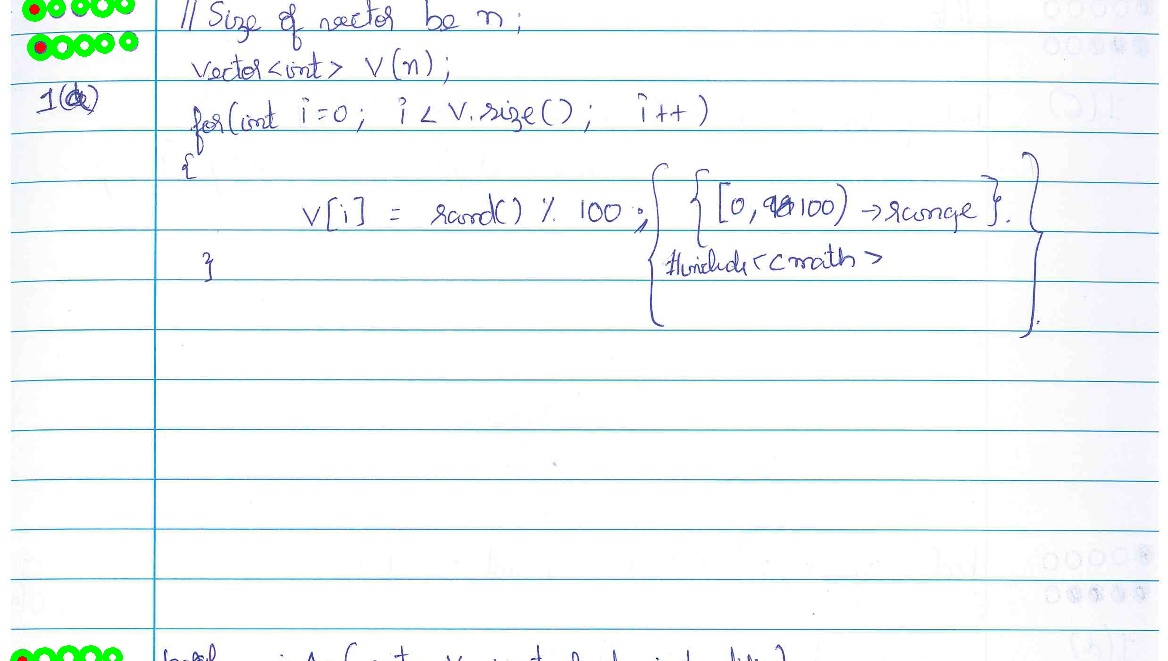 // Size of vector be n;
vector<int> v(n);
1(a)
for(int i=0; i < v.size(); i++)
{
v[i] = rand() % 100; { { [0, 100) → range }. }
#include<cmath>
}